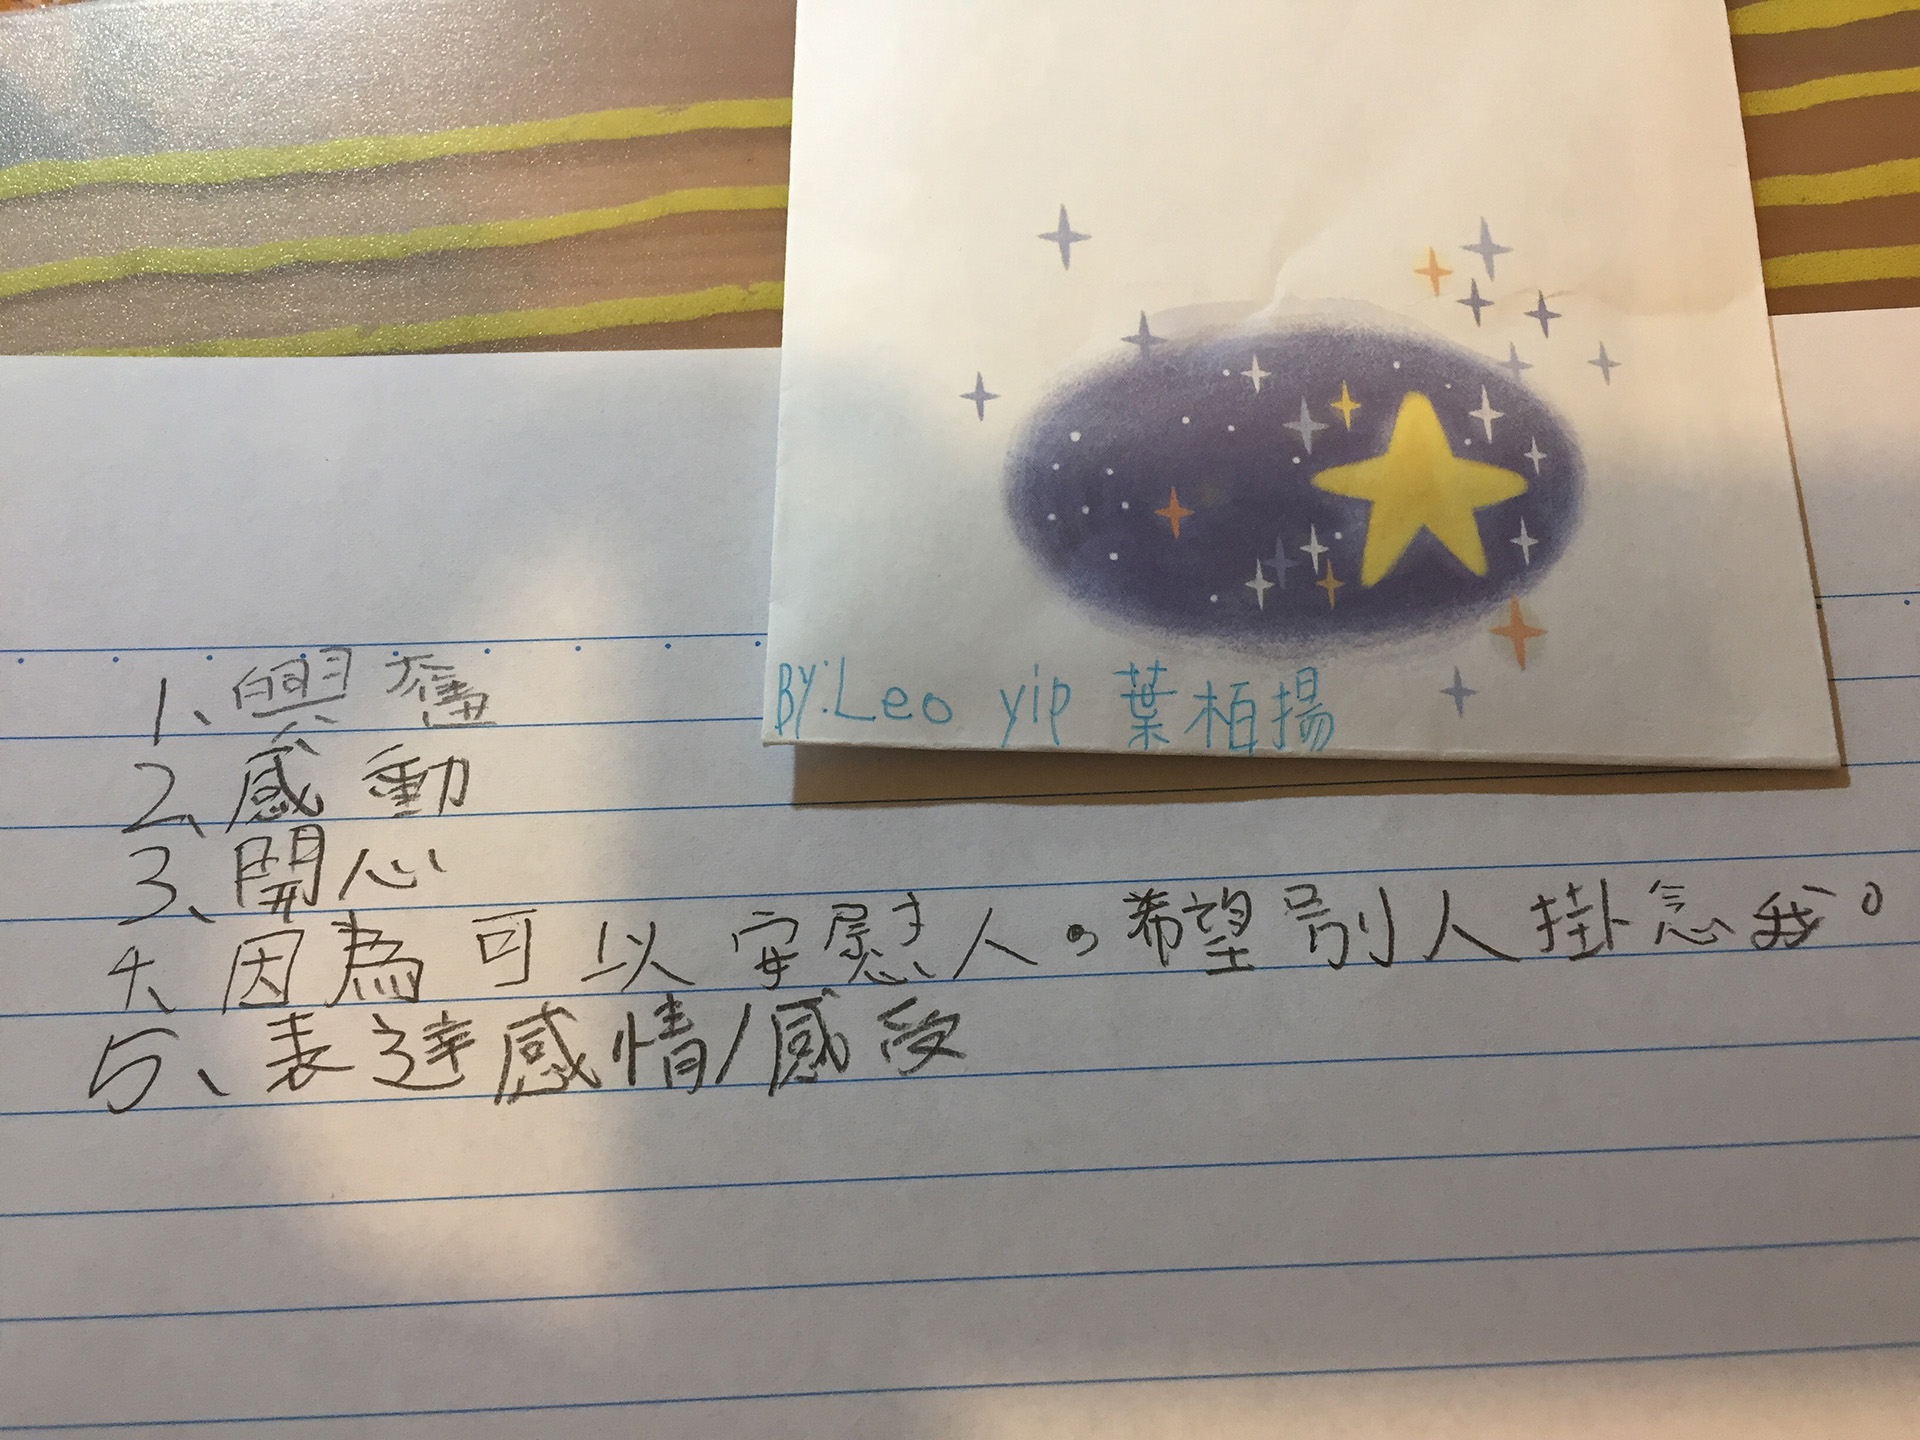 BY:Leo yip 葉柏揚
1、興奮
2、感動
3、開心
4、因為可以安慰人。希望別人掛念我。
5、表達感情/感受